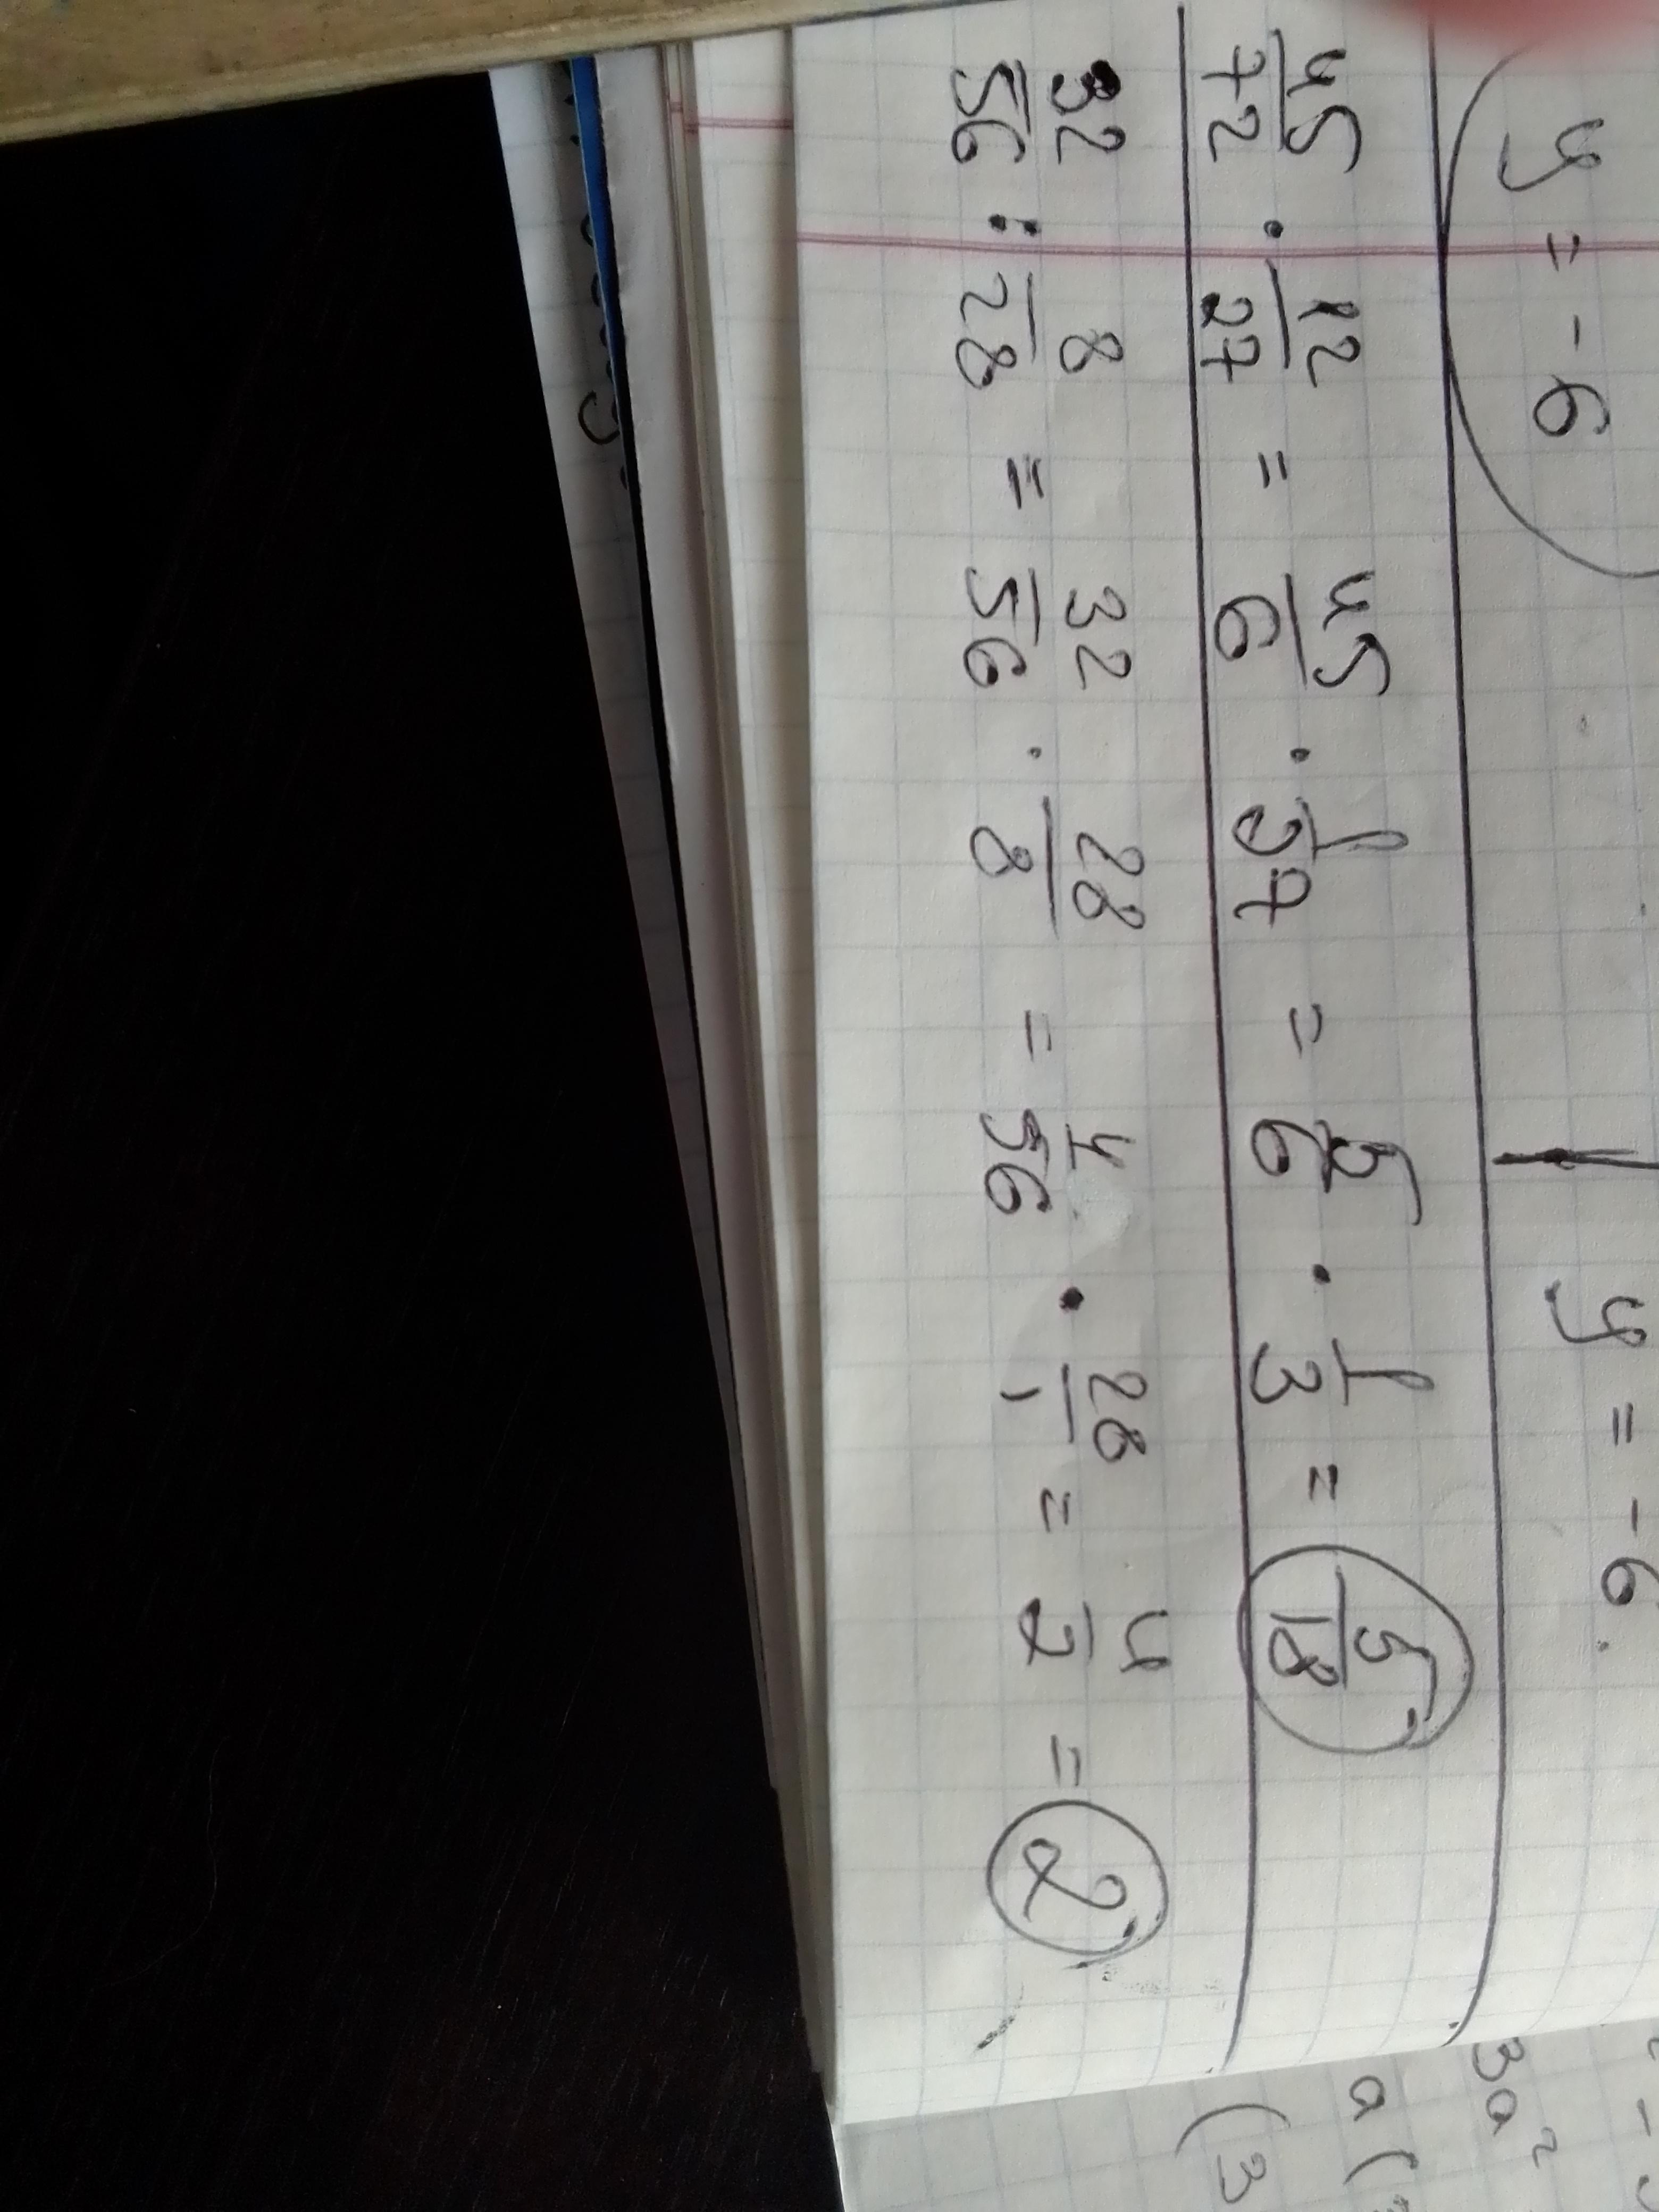 y = -6 | y = -6.
45/72 · 12/27 = 45/6 · 1/27 = 5/6 · 1/3 = 5/18
32/56 : 8/28 = 32/56 · 28/8 = 4/56 · 28/1 = 4/2 = 2
3a²
a(
(3